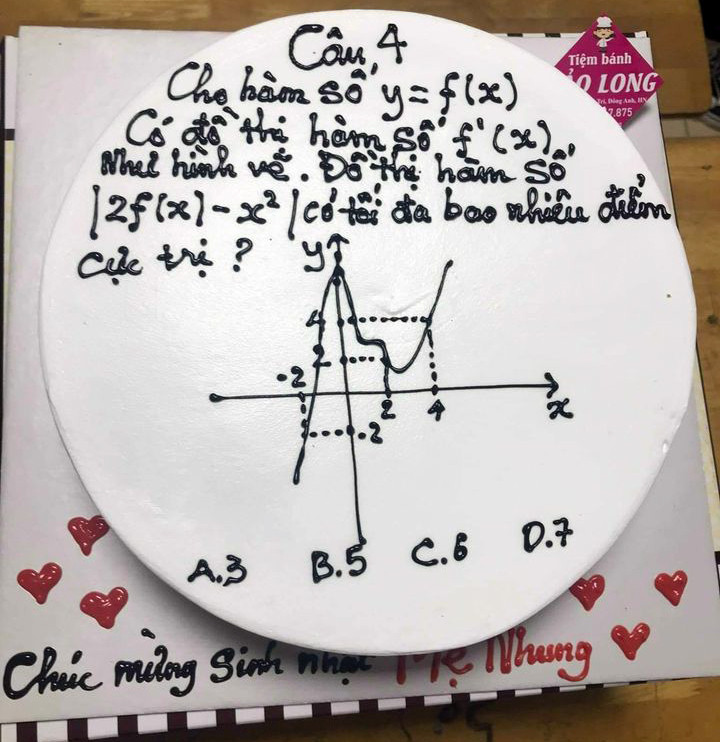 Câu 4
Cho hàm số y = f(x)
Có đồ thị hàm số f'(x)
Như hình vẽ. Đồ thị hàm số
|2f(x)-x² | có tối đa bao nhiêu điểm
cực trị ?
y
4
2
-2
2
4
x
-2
A.3 B.5 C.6 D.7
Tiệm bánh
ẢO LONG
Trì, Đông Anh, HN
7.875
Chúc mừng Sinh nhật Mẹ Nhung